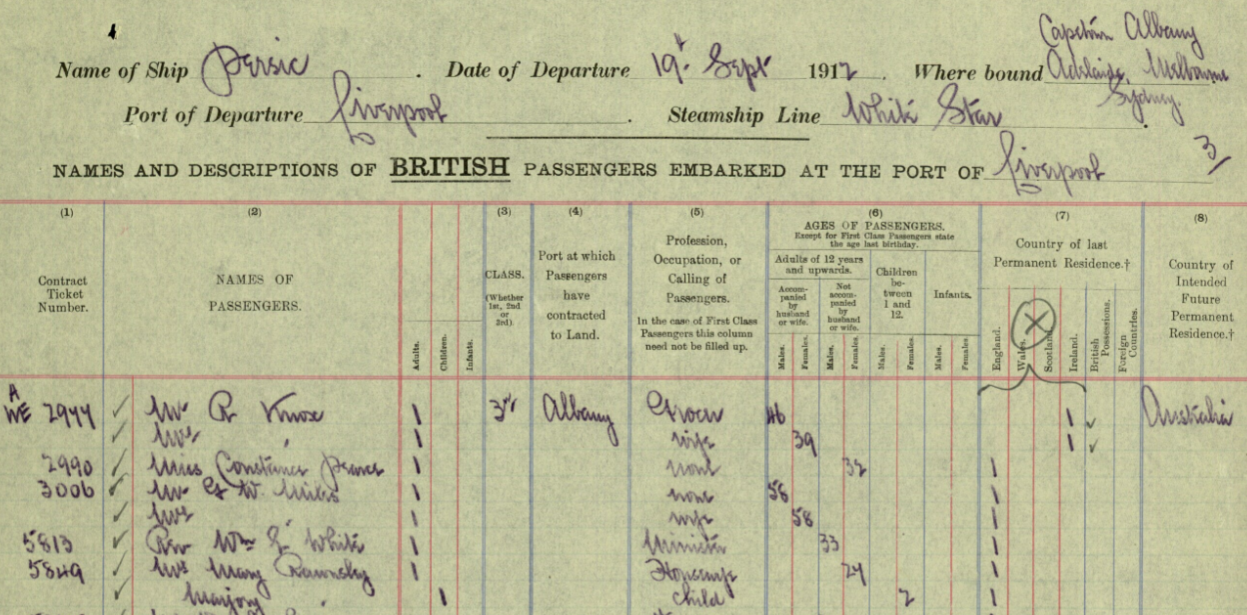 Capetown Albany
Name of Ship Persic . Date of Departure 19th Sept 1912 . Where bound Adelaide, Melbourne
Sydney.
Port of Departure Liverpool . Steamship Line White Star .
3/
NAMES AND DESCRIPTIONS OF BRITISH PASSENGERS EMBARKED AT THE PORT OF Liverpool
(1) (2) (3) (4) (5) (6) (7) (8)
Contract Ticket Number.
NAMES OF PASSENGERS.
Adults.
Children.
Infants.
CLASS.
(Whether 1st, 2nd or 3rd).
Port at which Passengers have contracted to Land.
Profession, Occupation, or Calling of Passengers.
In the case of First Class Passengers this column need not be filled up.
AGES OF PASSENGERS.
Except for First Class Passengers state the age last birthday.
Adults of 12 years and upwards.
Accompanied by husband or wife.
Not accompanied by husband or wife.
Children between 1 and 12.
Infants.
Males. Females. Males. Females. Males. Females. Males. Females.
Country of last Permanent Residence.†
England.
Wales.
Scotland.
Ireland.
British Possessions.
Foreign Countries.
Country of Intended Future Permanent Residence.†
A
WE 2977 ✓ Mr R Knox 1 3rd Albany Grocer 46 1 ✓ Australia
✓ Mrs " 1 wife 39 1 ✓
2990 ✓ Miss Constance 1 none 32 1
3006 ✓ Mr W. Miles 1 none 58 1
✓ Mrs 1 wife 58 1
5813 ✓ Rev Wm White 1 Minister 33 1
5849 ✓ Mrs Mary Rawnsley 1 Housewife 27 1
✓ Marjory " 1 child 2 1